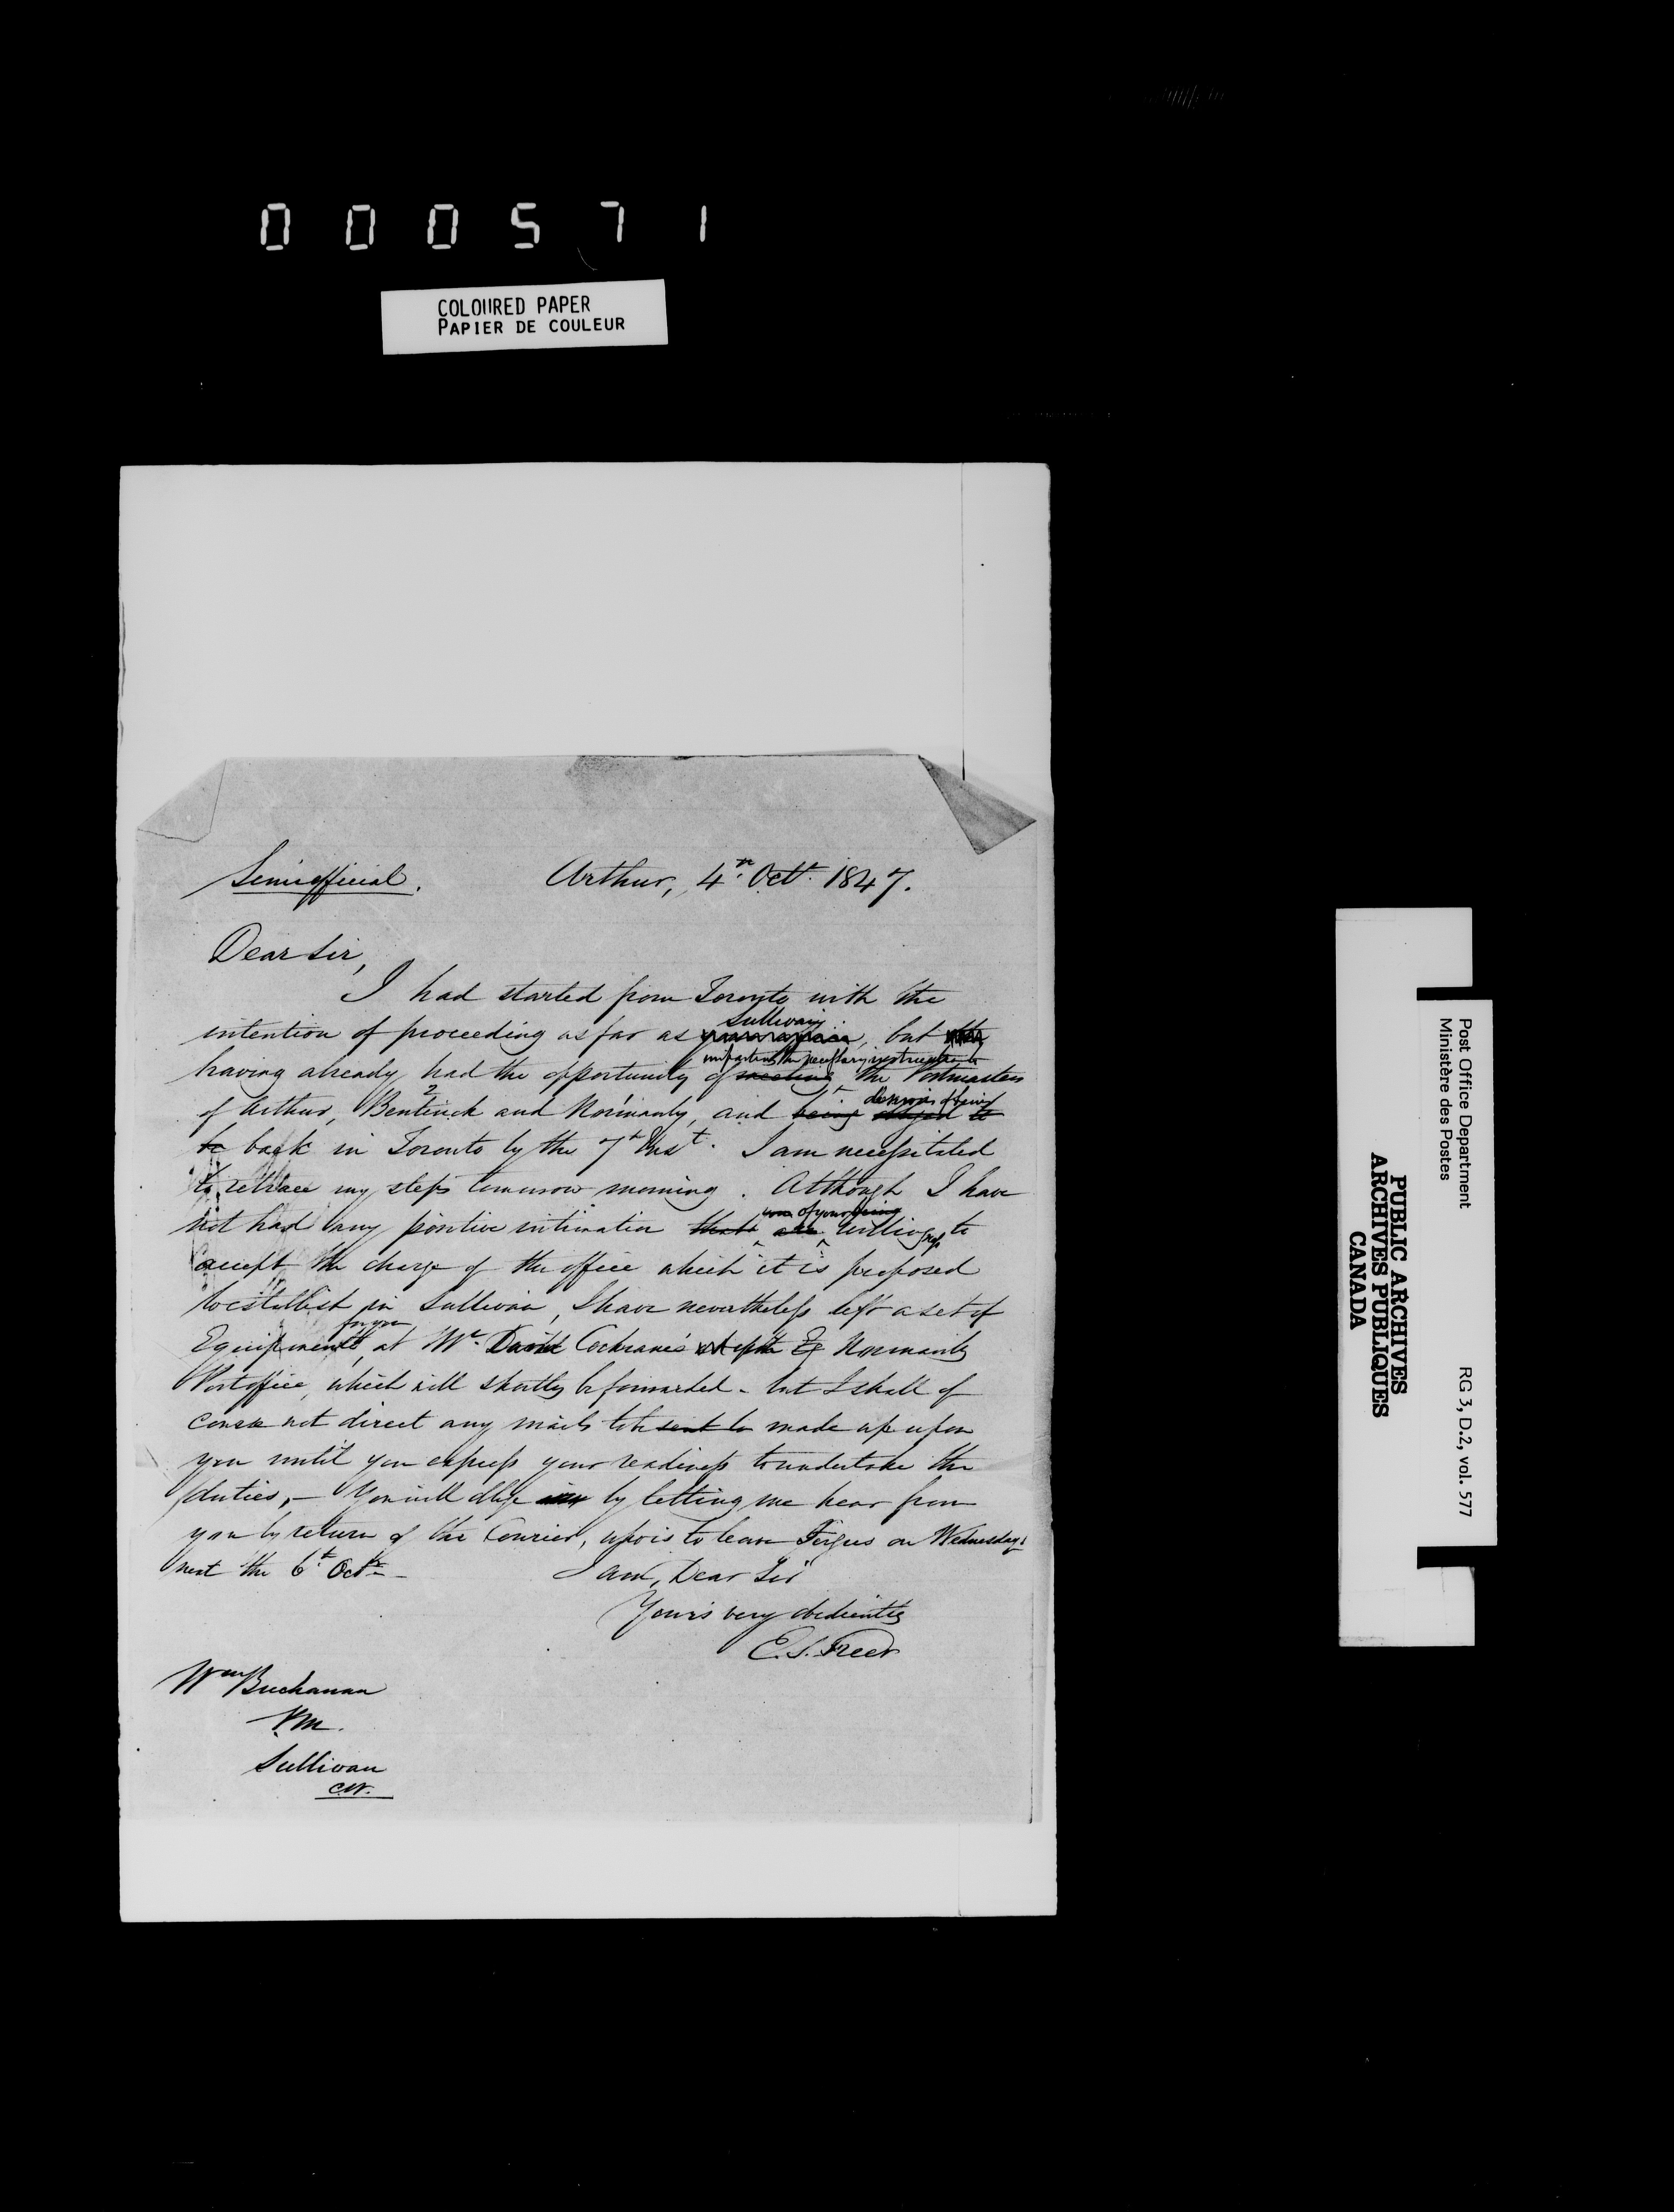 000571
COLOURED PAPER
PAPIER DE COULEUR
Semiofficial. Arthur, 4th Octr. 1847.
Dear Sir,
I had started from Toronto with the
Sullivan
intention of proceeding as far as , but
imparting the necessary instructions to
having already had the opportunity of meeting the Postmasters
desirous of being
of Arthur, Bentinck and Normanby, and being obliged to
be back in Toronto by the 7th Inst. I am necessitated
to retrace my steps tomorrow morning. Although I have
of your being
not had any positive intimation that are willingness to
accept the charge of the office which it is proposed
to establish in Sullivan, I have nevertheless left a set of
for you
Equipments at Mr. David Cochrane's Normanby
Post office, which will shortly be forwarded - but I shall of
course not direct any mails to be sent to made up upon
you until you express your readiness to undertake the
duties, - You will oblige by letting me hear from
you by return of the Courier, who is to leave Fergus on Wednesday
next the 6th Octr -
I am, Dear Sir
Your's very obediently
E.S. Freer
Wm Buchanan
P.M.
Sullivan
C.W.
Post Office Department
Ministère des Postes
RG 3, D.2, vol. 577
PUBLIC ARCHIVES
ARCHIVES PUBLIQUES
CANADA